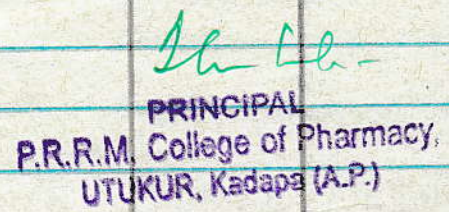 PRINCIPAL
P.R.R.M. College of Pharmacy,
UTUKUR, Kadapa (A.P.)